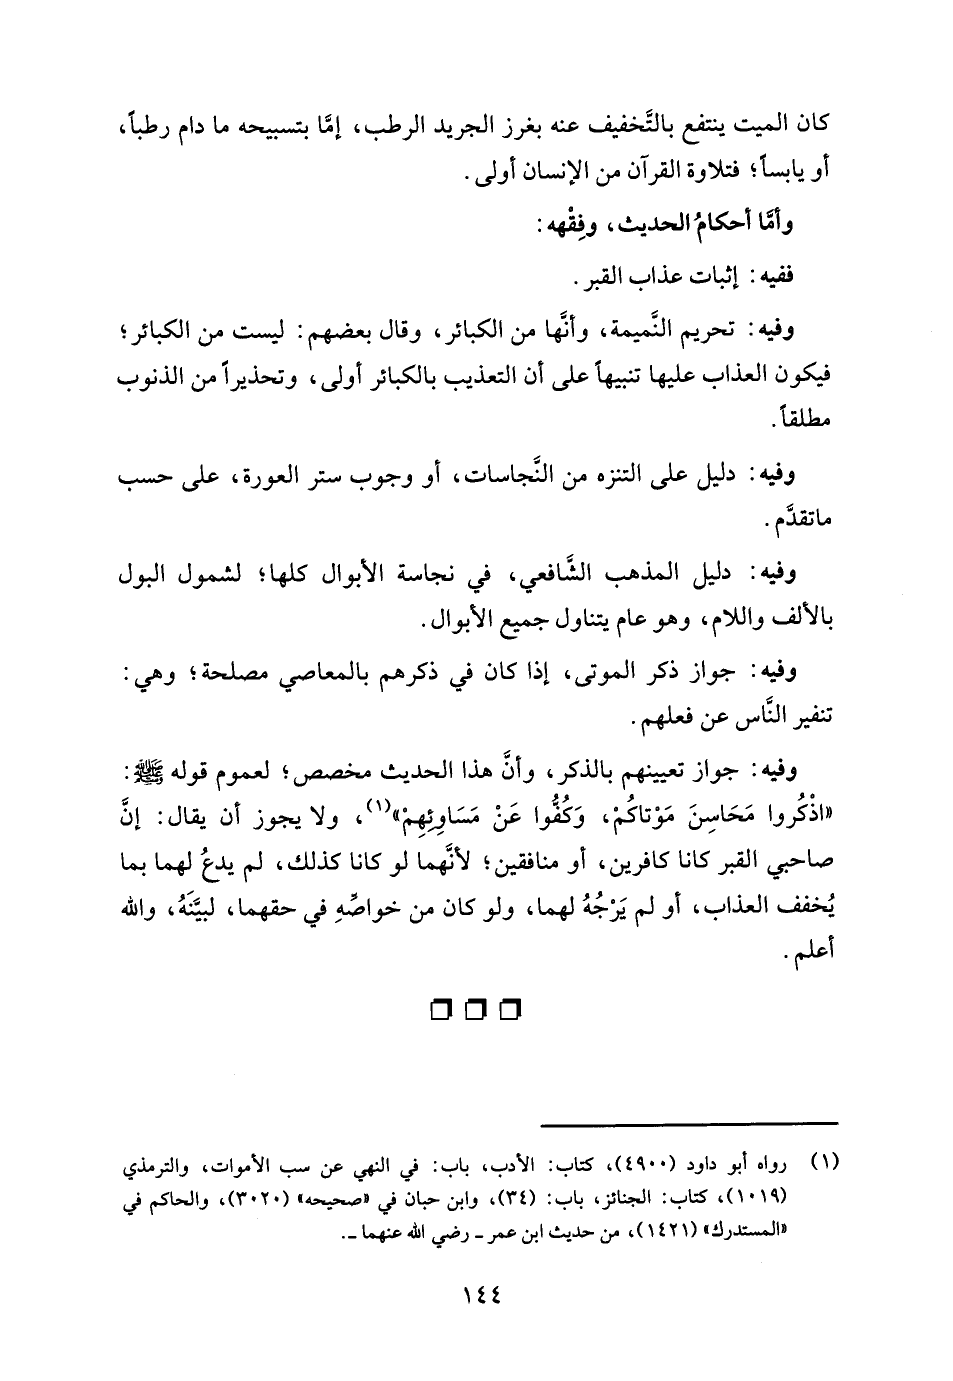 كان الميت ينتفع بالتَّخفيف عنه بغرز الجريد الرطب، إمَّا بتسبيحه ما دام رطباً،
أو يابساً؛ فتلاوة القرآن من الإنسان أولى.
وأمَّا أحكامُ الحديث، وفِقْهه:
ففيه: إثبات عذاب القبر.
وفيه: تحريم النَّميمة، وأنَّها من الكبائر، وقال بعضهم: ليست من الكبائر؛
فيكون العذاب عليها تنبيهاً على أن التعذيب بالكبائر أولى، وتحذيراً من الذنوب
مطلقاً.
وفيه: دليل على التنزه من النَّجاسات، أو وجوب ستر العورة، على حسب
ماتقدَّم.
وفيه: دليل المذهب الشَّافعي، في نجاسة الأبوال كلها؛ لشمول البول
بالألف واللام، وهو عام يتناول جميع الأبوال.
وفيه: جواز ذكر الموتى، إذا كان في ذكرهم بالمعاصي مصلحة؛ وهي:
تنفير النَّاس عن فعلهم.
وفيه: جواز تعيينهم بالذكر، وأنَّ هذا الحديث مخصص؛ لعموم قوله ﷺ:
«اذْكُروا مَحَاسِنَ مَوْتاكُمْ، وَكُفُّوا عَنْ مَسَاوِئِهِمْ»(١)، ولا يجوز أن يقال: إنَّ
صاحبي القبر كانا كافرين، أو منافقين؛ لأنَّهما لو كانا كذلك، لم يدعُ لهما بما
يُخفف العذاب، أو لم يَرْجُهُ لهما، ولو كان من خواصِّهِ في حقهما، لبيَّنَهُ، والله
أعلم.
(١) رواه أبو داود (٤٩٠٠)، كتاب: الأدب، باب: في النهي عن سب الأموات، والترمذي
(١٠١٩)، كتاب: الجنائز، باب: (٣٤)، وابن حبان في «صحيحه» (٣٠٢٠)، والحاكم في
«المستدرك» (١٤٢١)، من حديث ابن عمر ـ رضي الله عنهما ـ.
١٤٤